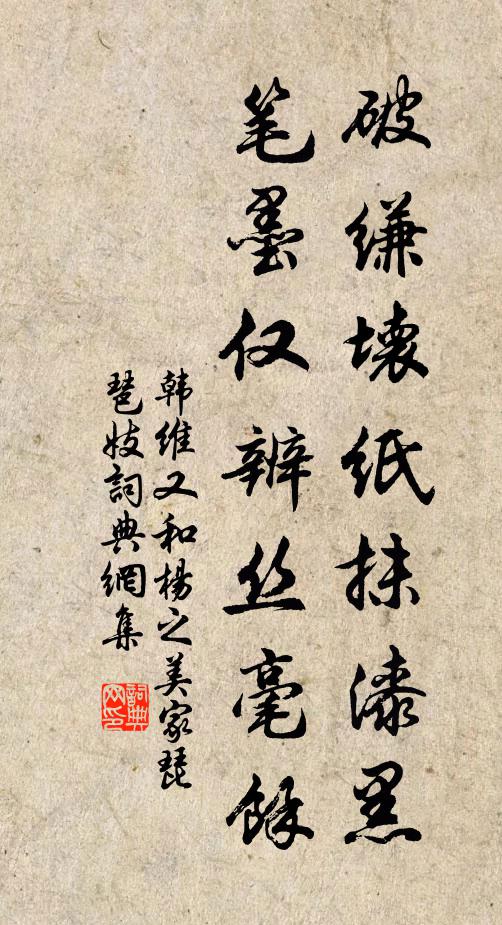 破缣壊纸抹漆黑
笔墨仅辨丝毫馀
韩维又和杨之美家琵
琶妓詞典網集
詞典网印